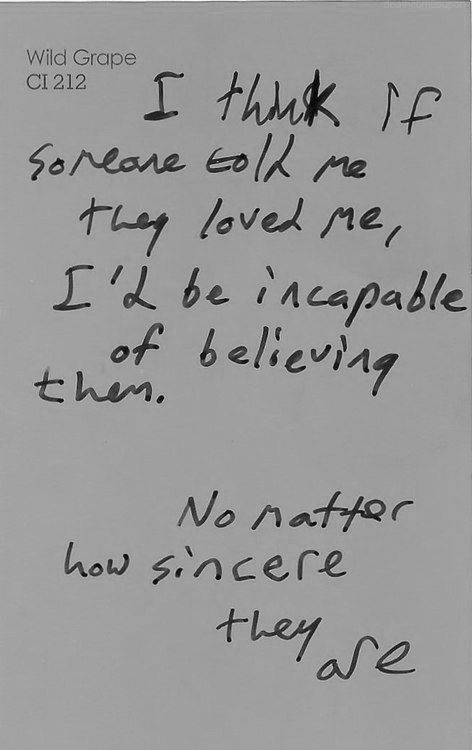 Wild Grape
CI 212
I think if
someone told me
they loved me,
I'd be incapable
of believing
them.
No matter
how sincere
they
are